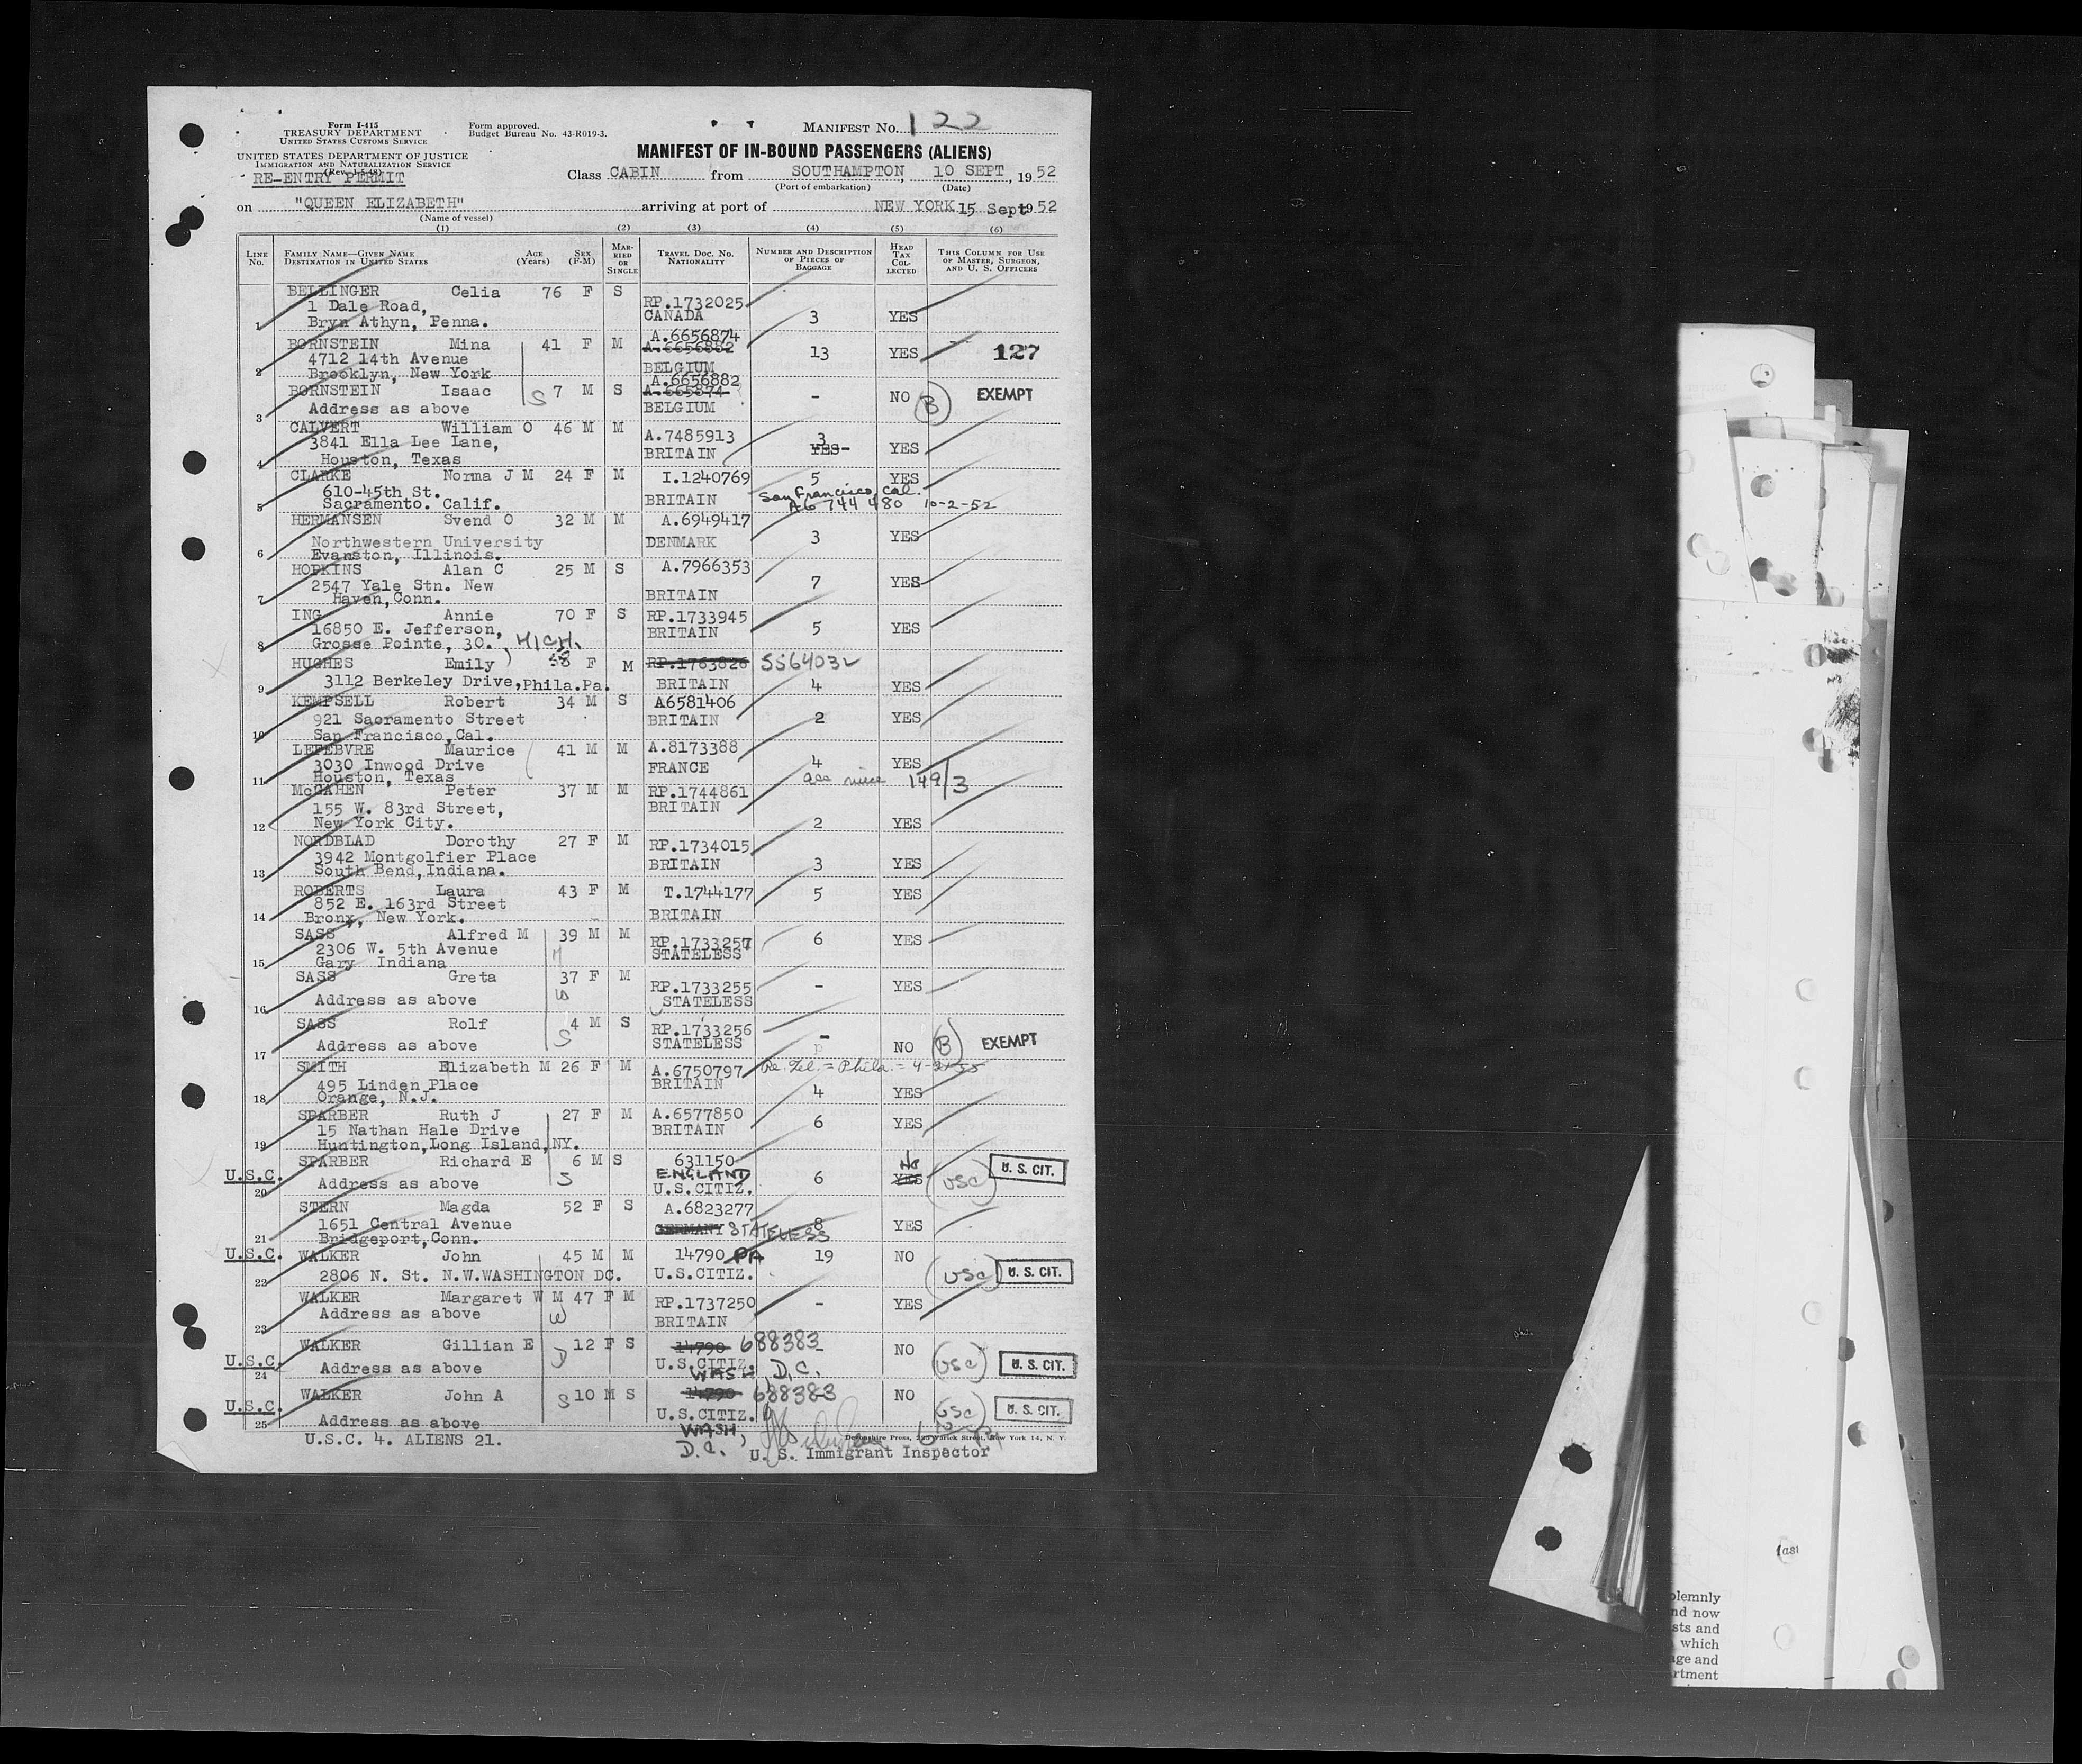 Form I-415
TREASURY DEPARTMENT
UNITED STATES CUSTOMS SERVICE
Form approved.
Budget Bureau No. 43-R019-3.
MANIFEST NO. 122
UNITED STATES DEPARTMENT OF JUSTICE
IMMIGRATION AND NATURALIZATION SERVICE
RE-ENTRY PERMIT
MANIFEST OF IN-BOUND PASSENGERS (ALIENS)
Class CABIN from SOUTHAMPTON, 10 SEPT, 1952
(Port of embarkation) (Date)
on "QUEEN ELIZABETH" arriving at port of NEW YORK 15 Sept 1952
(Name of vessel)
(1) (2) (3) (4) (5) (6)
LINE No. FAMILY NAME—GIVEN NAME DESTINATION IN UNITED STATES AGE (Years) SEX (F-M) MARRIED OR SINGLE TRAVEL DOC. NO. NATIONALITY NUMBER AND DESCRIPTION OF PIECES OF BAGGAGE HEAD TAX COLLECTED THIS COLUMN FOR USE OF MASTER, SURGEON, AND U. S. OFFICERS
BELLINGER Celia 76 F S
1 Dale Road, RP.1732025
1 Bryn Athyn, Penna. CANADA 3 YES
BORNSTEIN Mina 41 F M A.6656874
4712 14th Avenue A.6656882 13 YES 127
2 Brooklyn, New York BELGIUM
BORNSTEIN Isaac S 7 M S A.6656882
A.665874 - NO B EXEMPT
3 Address as above BELGIUM
CALVERT William O 46 M M A.7485913 3
3841 Ella Lee Lane, BRITAIN YES- YES
4 Houston, Texas
CLARKE Norma J M 24 F M I.1240769 5 YES
610-45th St. San Francisco, Cal.
5 Sacramento. Calif. BRITAIN A6 744 480 10-2-52
HERMANSEN Svend O 32 M M A.6949417
Northwestern University DENMARK 3 YES
6 Evanston, Illinois.
HOPKINS Alan C 25 M S A.7966353
2547 Yale Stn. New 7 YES
7 Haven, Conn. BRITAIN
ING Annie 70 F S RP.1733945
16850 E. Jefferson, BRITAIN 5 YES
8 Grosse Pointe, 30. MICH.
HUGHES Emily 58 F M RP.1763826 SS64032
9 3112 Berkeley Drive, Phila.Pa. BRITAIN 4 YES
KEMPSELL Robert 34 M S A6581406
921 Sacramento Street BRITAIN 2 YES
10 San Francisco, Cal.
LEFEBVRE Maurice 41 M M A.8173388
3030 Inwood Drive FRANCE 4 YES
11 Houston, Texas acc niece 149/3
McGAHEN Peter 37 M M RP.1744861
155 W. 83rd Street, BRITAIN
12 New York City. 2 YES
NORDBLAD Dorothy 27 F M RP.1734015
3942 Montgolfier Place BRITAIN 3 YES
13 South Bend, Indiana.
ROBERTS Laura 43 F M T.1744177 5 YES
852 E. 163rd Street
14 Bronx, New York. BRITAIN
SASS Alfred M 39 M M RP.1733257 6 YES
2306 W. 5th Avenue STATELESS
15 Gary Indiana H
SASS Greta 37 F M RP.1733255 - YES
16 Address as above W STATELESS
SASS Rolf 4 M S RP.1733256 -
17 Address as above S STATELESS NO B EXEMPT
SMITH Elizabeth M 26 F M A.6750797
495 Linden Place BRITAIN 4 YES
18 Orange, N.J.
SPARBER Ruth J 27 F M A.6577850 6 YES
15 Nathan Hale Drive BRITAIN
19 Huntington, Long Island, NY.
SPARBER Richard E 6 M S 631150 No
U.S.C. ENGLAND 6 YES USC U. S. CIT.
20 Address as above S U.S.CITIZ.
STERN Magda 52 F S A.6823277
1651 Central Avenue GERMANY STATELESS 8 YES
21 Bridgeport, Conn.
U.S.C. WALKER John 45 M M 14790 PA 19 NO
22 2806 N. St. N.W. WASHINGTON DC. U.S.CITIZ. USC U. S. CIT.
WALKER Margaret W M 47 F M RP.1737250 - YES
23 Address as above W BRITAIN
WALKER Gillian E D 12 F S 14790 688383 NO
U.S.C. U.S.CITIZ. USC U. S. CIT.
24 Address as above WASH, D.C.
WALKER John A S 10 M S 14790 688383 NO
U.S.C. U.S.CITIZ. USC U. S. CIT.
25 Address as above WASH, D.C.
U.S.C. 4. ALIENS 21.
Devonshire Press, Varick Street, New York 14, N. Y.
U. S. Immigrant Inspector
olemnly
nd now
sts and
which
age and
rtment